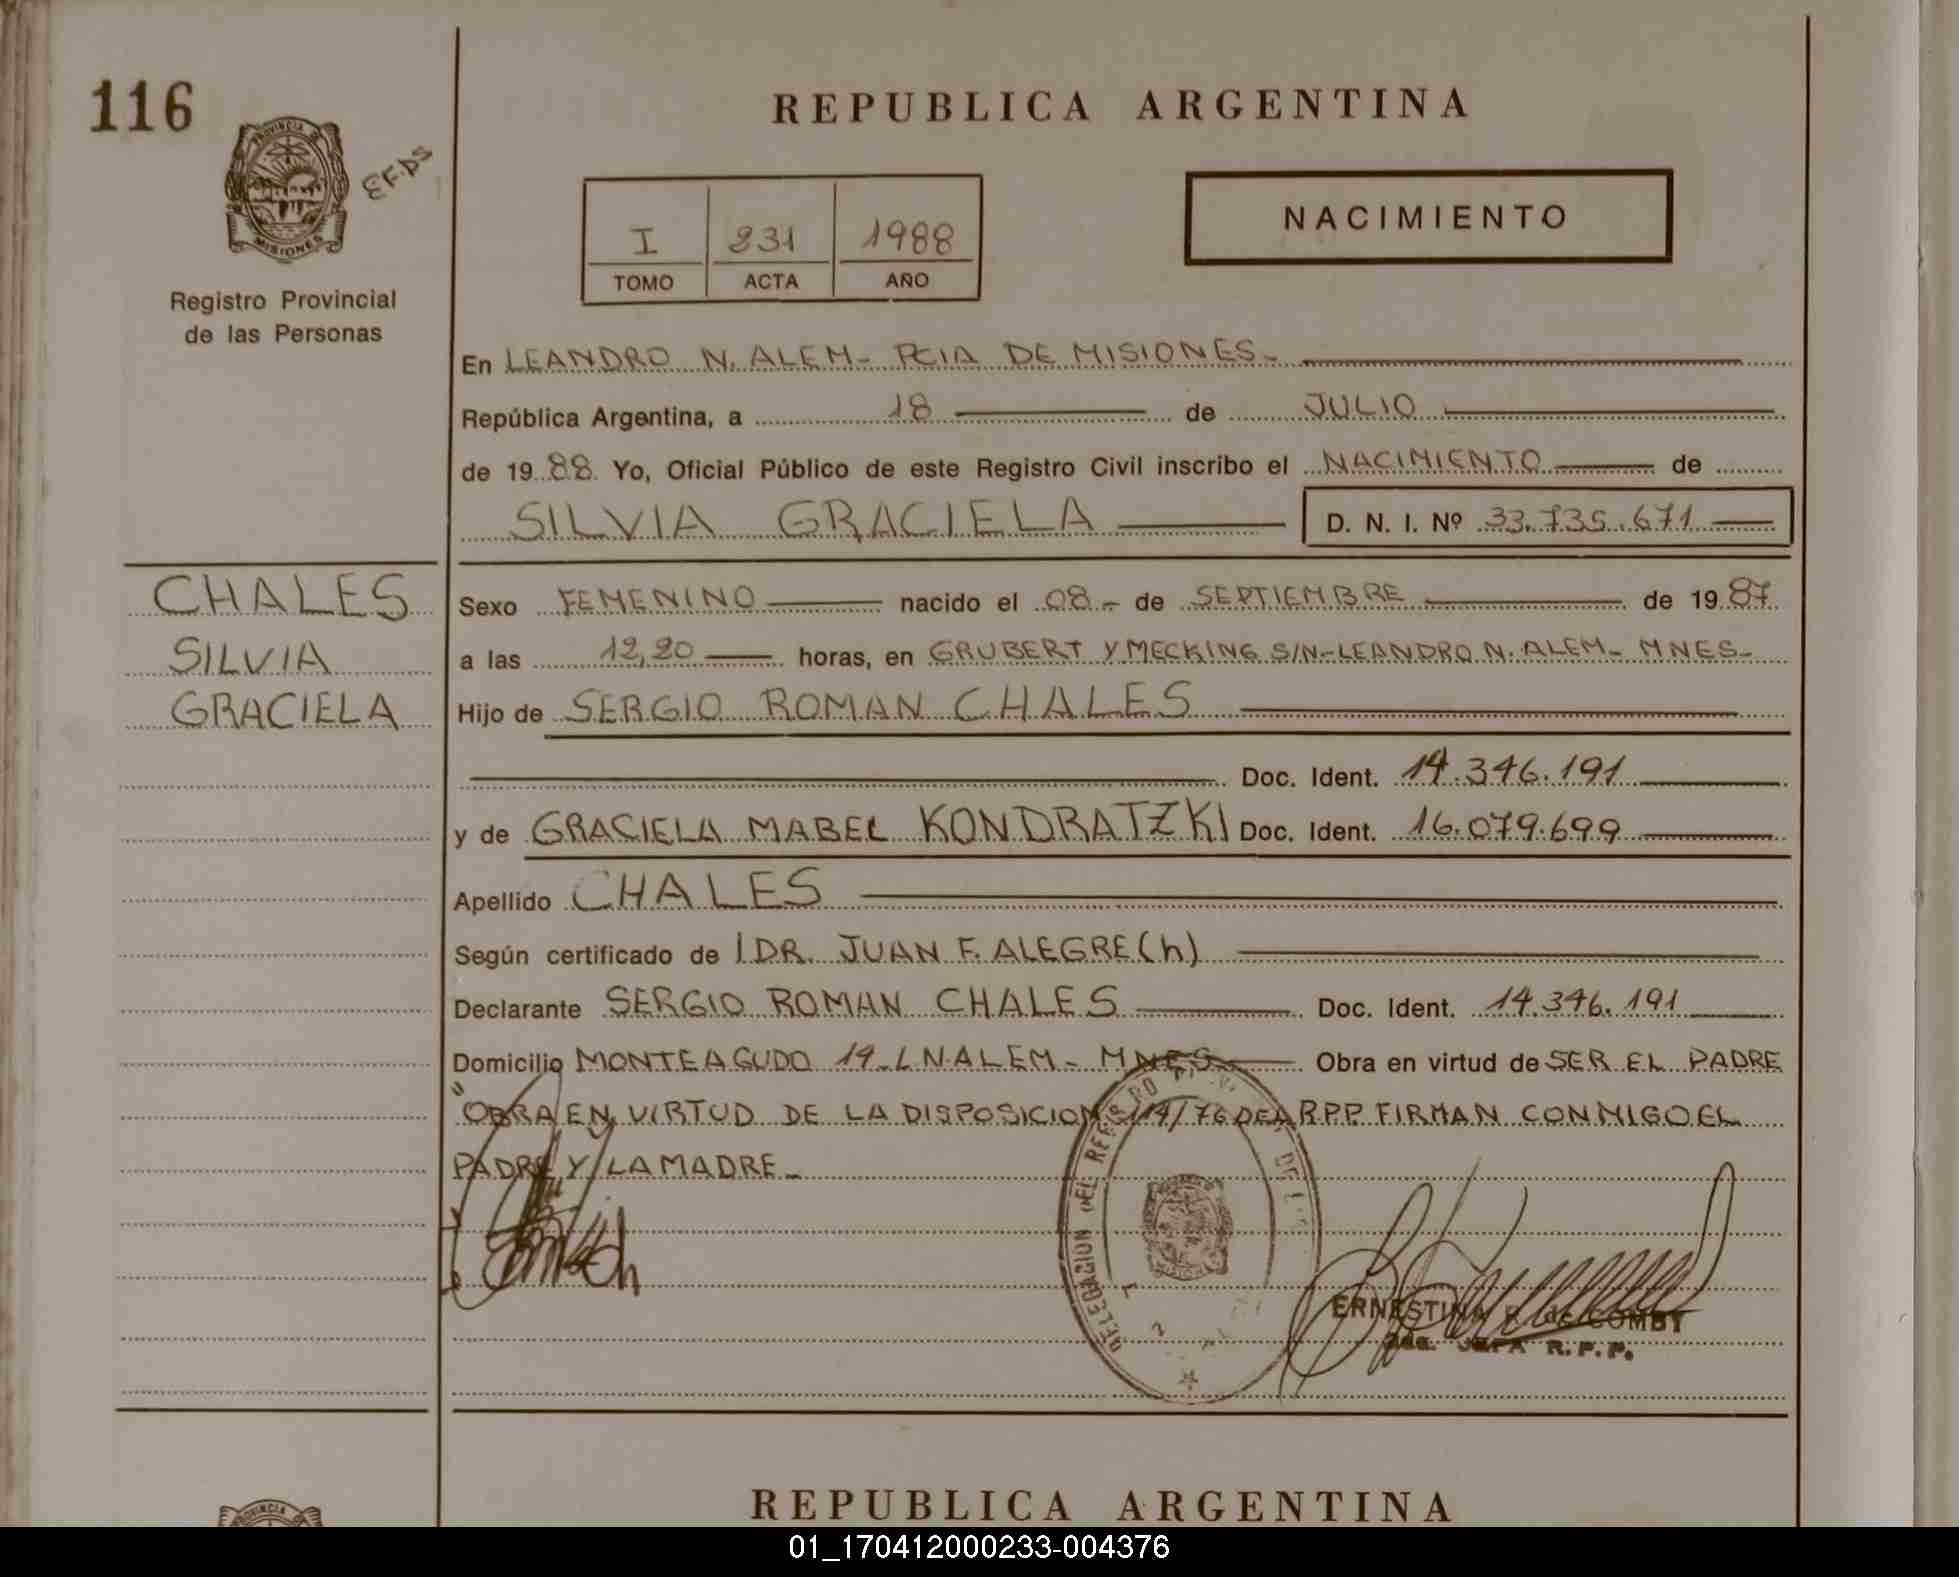 116
REPUBLICA ARGENTINA
PROVINCIA D
MISIONES
Registro Provincial
de las Personas
I 231 1988
TOMO ACTA AÑO
NACIMIENTO
En LEANDRO N. ALEM - PCIA DE MISIONES -
República Argentina, a 18 de JULIO
de 1988. Yo, Oficial Público de este Registro Civil inscribo el NACIMIENTO de
SILVIA GRACIELA D. N. I. Nº 33.735.671
CHALES
SILVIA
GRACIELA
Sexo FEMENINO nacido el 08 - de SEPTIEMBRE de 1987
a las 12,20 horas, en GRUBERT Y MECKING S/N - LEANDRO N. ALEM - MNES -
Hijo de SERGIO ROMAN CHALES
Doc. Ident. 14.346.191
y de GRACIELA MABEL KONDRATZKI Doc. Ident. 16.079.699
Apellido CHALES
Según certificado de l DR. JUAN F. ALEGRE (h)
Declarante SERGIO ROMAN CHALES Doc. Ident. 14.346.191
Domicilio MONTEAGUDO 19 - L N. ALEM - MNES Obra en virtud de SER EL PADRE
"OBRA EN VIRTUD DE LA DISPOSICION 114/76 DEA R.P.P. FIRMAN CONMIGO EL
PADRE Y LA MADRE -
DELEGACION DEL REGISTRO
ERNESTINA de COMBY
2da. JEFA R.P.P.
REPUBLICA ARGENTINA
PROVINCIA
01_170412000233-004376